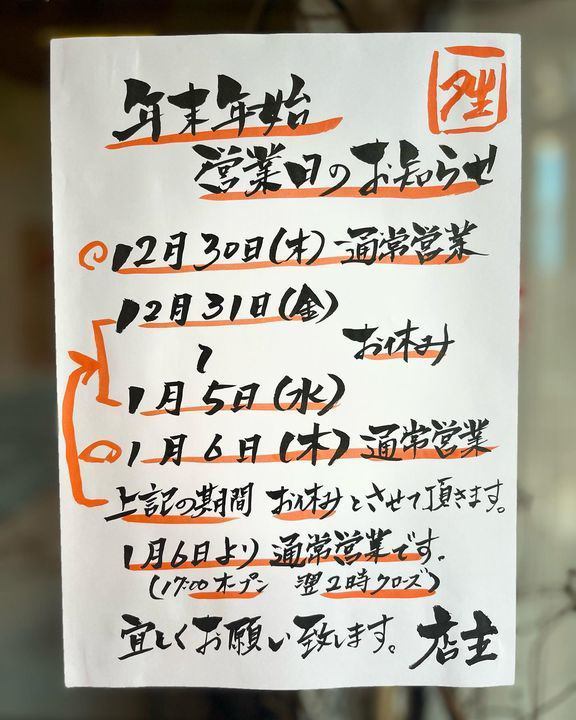 年末年始
営業日のお知らせ
12月30日(木) 通常営業
12月31日(金)
〜 お休み
1月5日(水)
1月6日(木) 通常営業
上記の期間 お休みとさせて頂きます。
1月6日より 通常営業です。
(17:00オープン 翌2時クローズ)
宜しくお願い致します。 店主